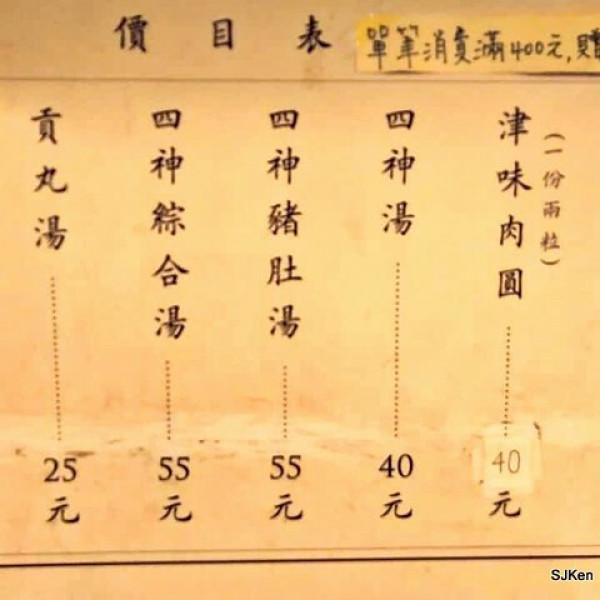 價目表
單筆消費滿400元,贈
津味肉圓
(一份兩粒)
40元
四神湯
40元
四神豬肚湯
55元
四神綜合湯
55元
貢丸湯
25元
SJKen